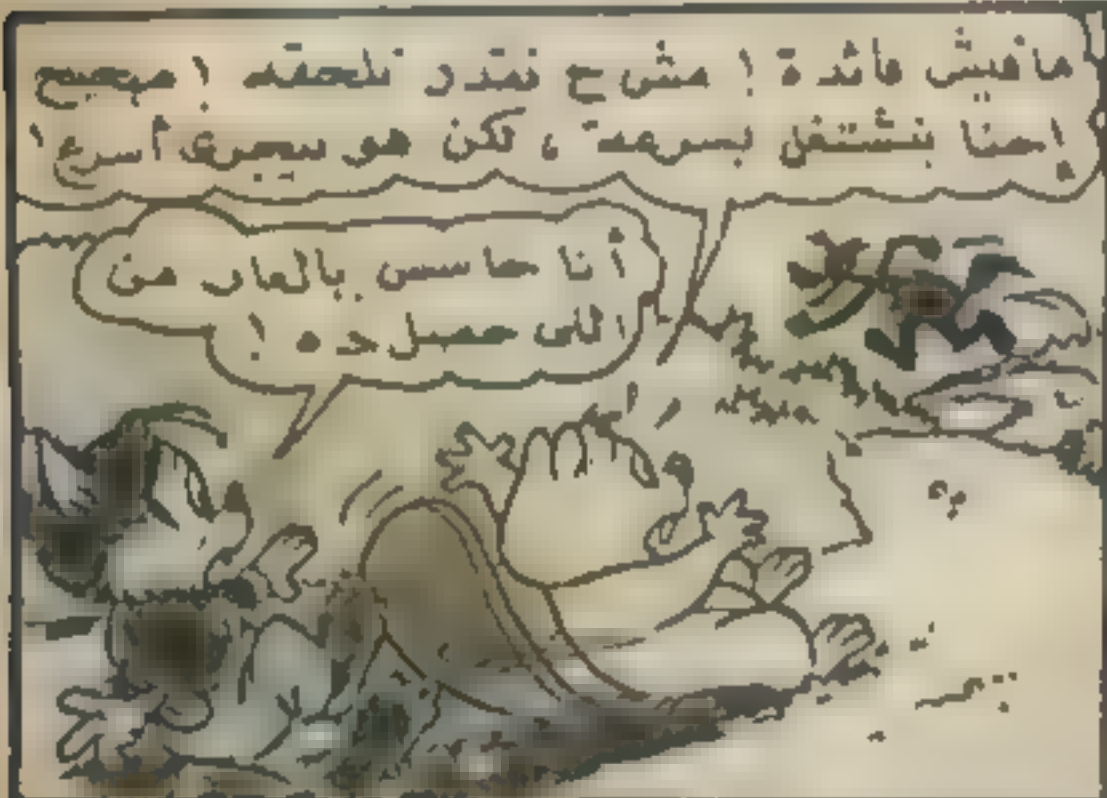 مافيش فائدة ! مش ح نقدر نلحقه ! صحيح
إحنا بنشتغل بسرعة ، لكن هو بيجرى أسرع !
أنا حاسس بالعار من
اللى حصل ده !